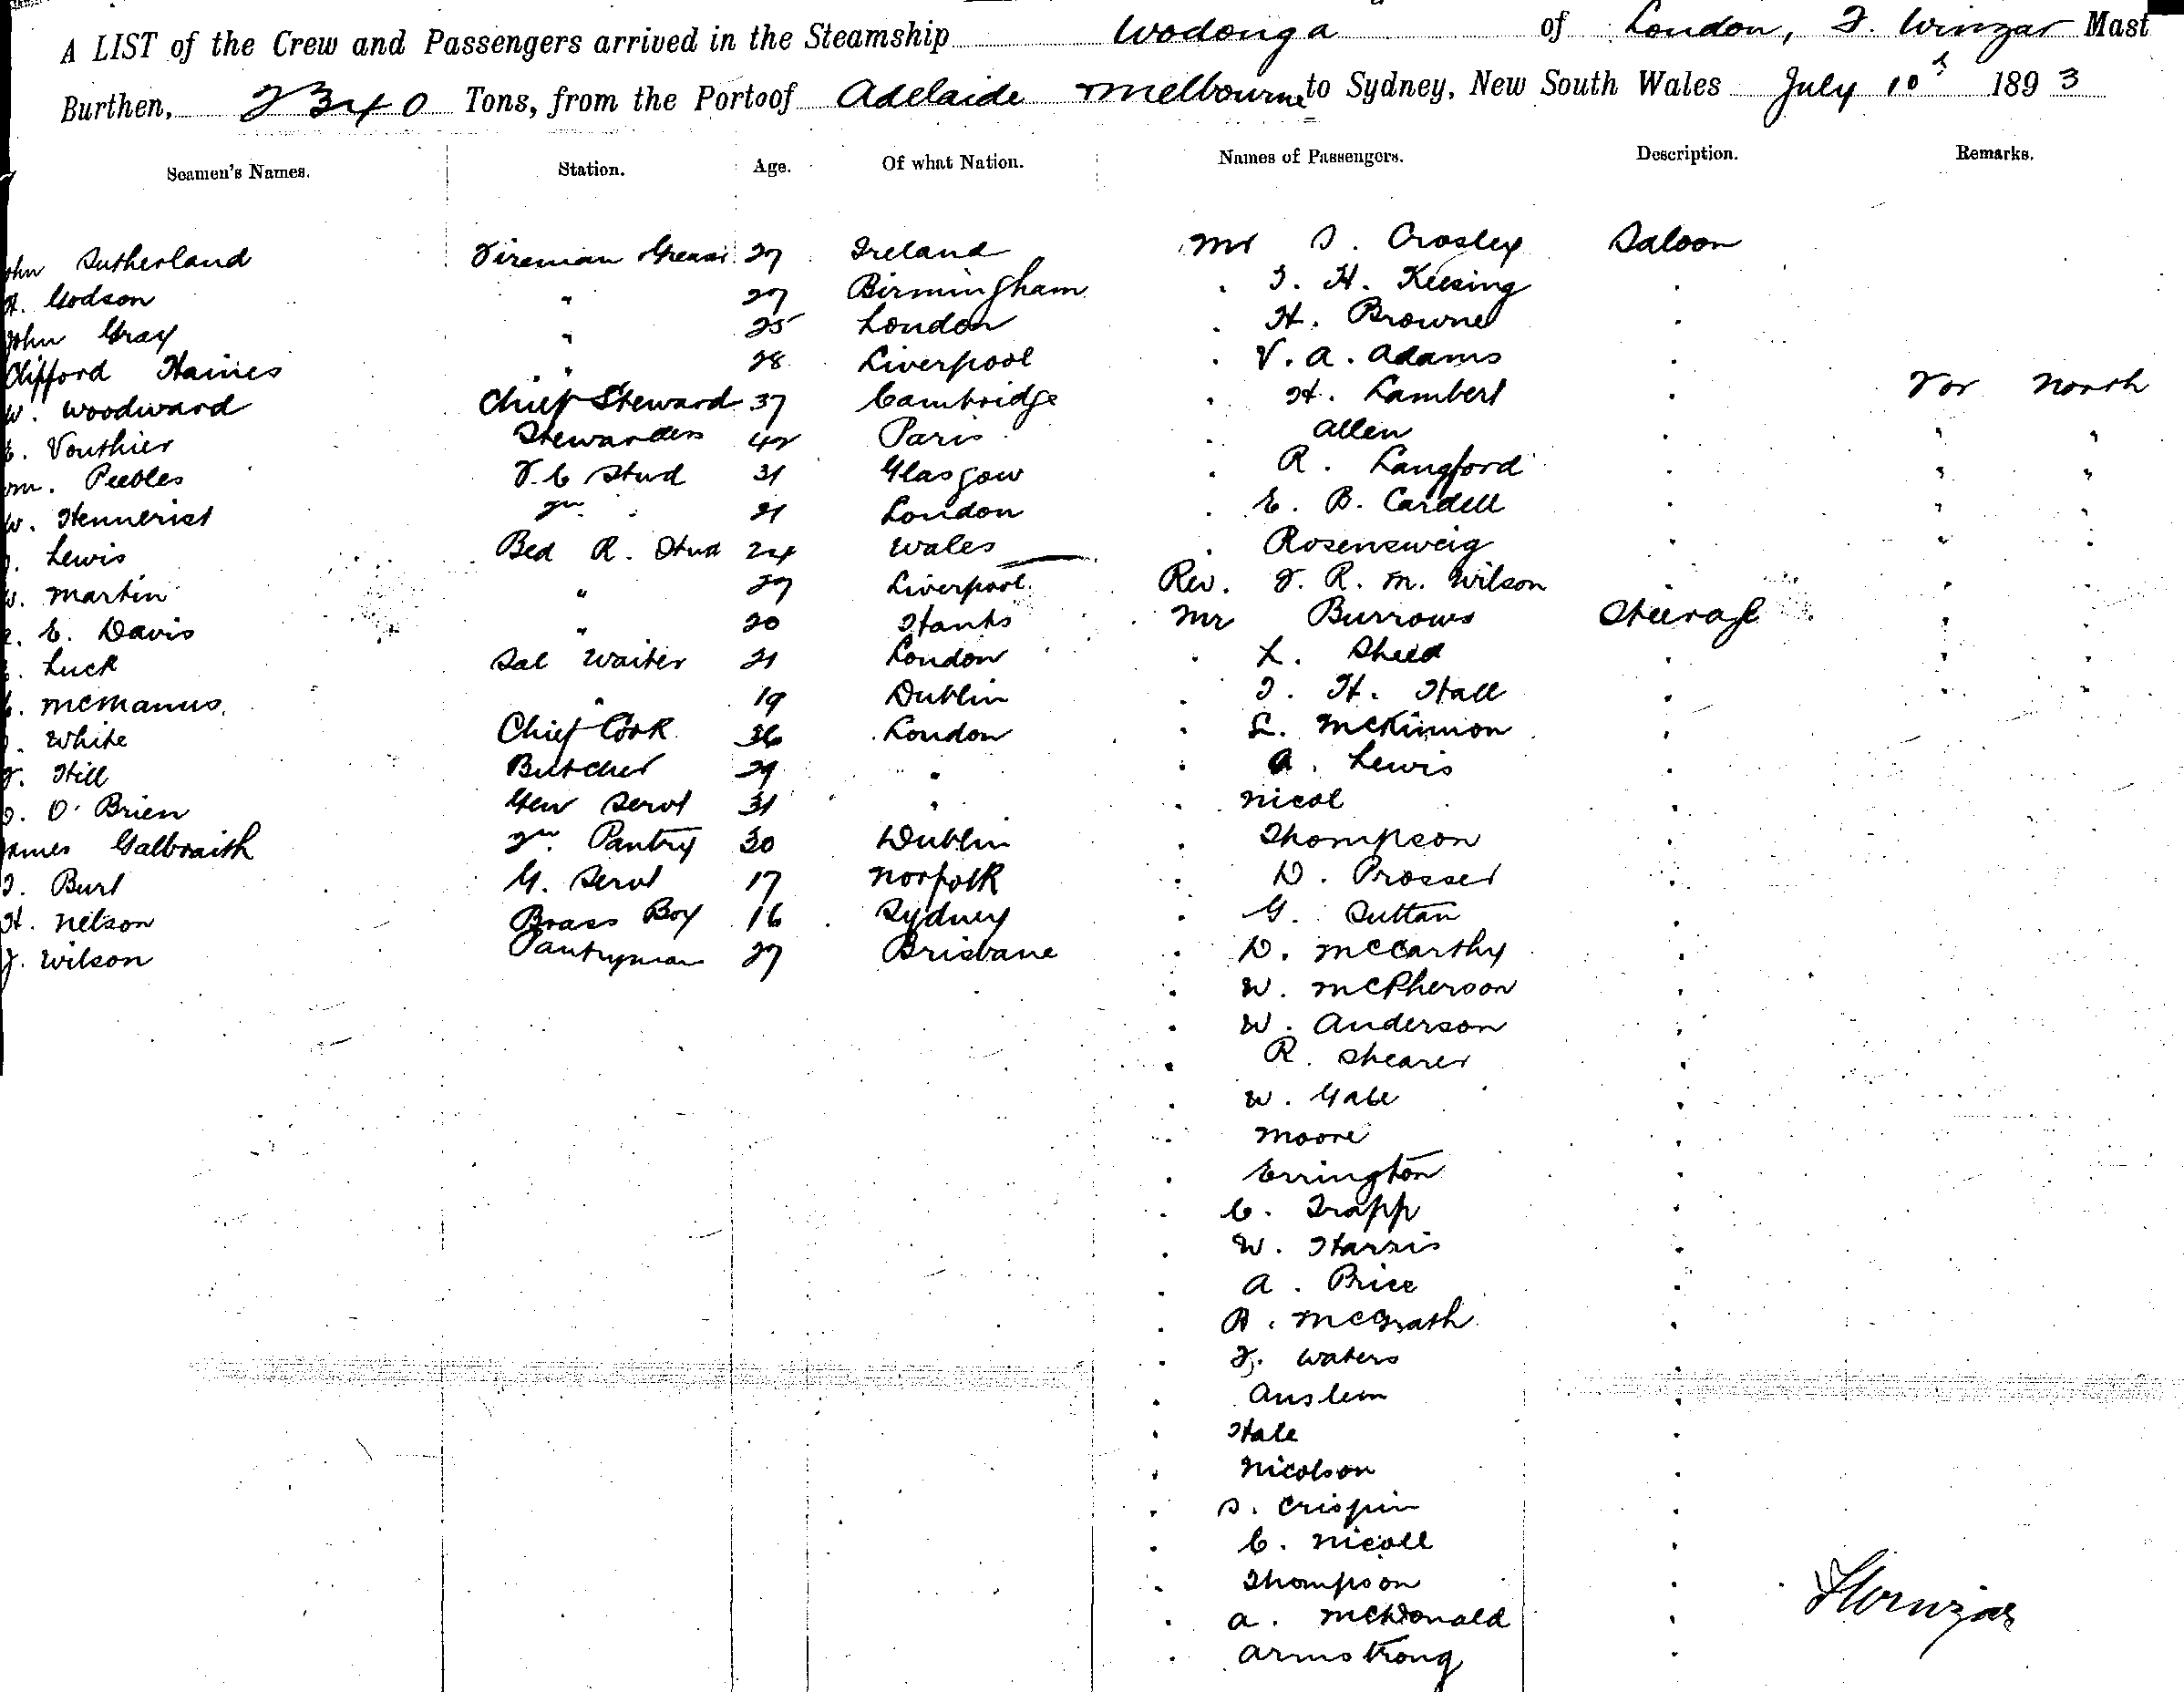 A LIST of the Crew and Passengers arrived in the Steamship Wodonga of London, F. Winzar Mast
Burthen, 2340 Tons, from the Port of Adelaide Melbourne to Sydney, New South Wales July 10th 1893
Seamen's Names. Station. Age. Of what Nation. Names of Passengers. Description. Remarks.
John Sutherland Fireman Greaser 27 Ireland Mr S. Crosley Saloon
H. Godson " 27 Birmingham . T. H. Keesing .
John Gray " 25 London . H. Browne .
Clifford Haines " 28 Liverpool . V. A. Adams .
W. Woodward Chief Steward 37 Cambridge . H. Lambert . For North
E. Vouthier Stewardess 42 Paris . Allen . " "
Wm. Peebles F. C Stud 31 Glasgow . R. Langford . " "
W. Hennerick 2nd " 21 London . E. B. Cardell . " "
Lewis Bed R. Stud 24 Wales . Rosensweig . " "
W. Martin " 27 Liverpool Rev. F. R. M. Wilson . " "
E. Davis " 20 Hants Mr Burrows Steerage " "
Luck Sal Waiter 21 London . L. Sheed . " "
McManus " 19 Dublin . T. H. Hall . " "
White Chief Cook 36 London . L. McKinnon .
F. Hill Butcher 29 " . A. Lewis .
O'Brien Gen Servt 31 " . Nicol .
James Galbraith 2nd Pantry 30 Dublin . Thompson .
J. Burt G. Servt 17 Norfolk . D. Prosser .
H. Nelson Brass Boy 16 Sydney . G. Suttan .
J. Wilson Pantryman 27 Brisbane . D. McCarthy .
. W. McPherson .
. W. Anderson .
. R. Shearer .
. W. Gale .
. Moore .
. Errington .
. C. Trapp .
. W. Harris .
. A. Price .
. A. McGrath .
. F. Waters .
. Auslem .
. Hale .
. Nicolson .
. S. Crispin .
. C. Nicoll .
. Thompson .
. A. McDonald .
. Armstrong .
F Winzar